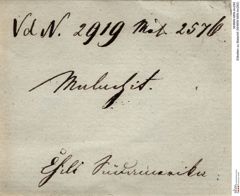 VdN. 2919 Mat. 2576
Malachit.
Chili Südamerika.